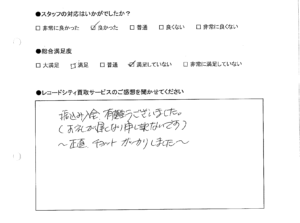 ●スタッフの対応はいかがでしたか？
□ 非常に良かった ☑ 良かった □ 普通 □ 良くない □ 非常に良くない
●総合満足度
□ 大満足 □ 満足 □ 普通 ☑ 満足していない □ 非常に満足していない
●レコードシティ買取サービスのご感想を聞かせてください
振込み金、有難うございました。
(お礼が遅くなり申し訳ないです)
〜正直 チョット ガッカリしました〜